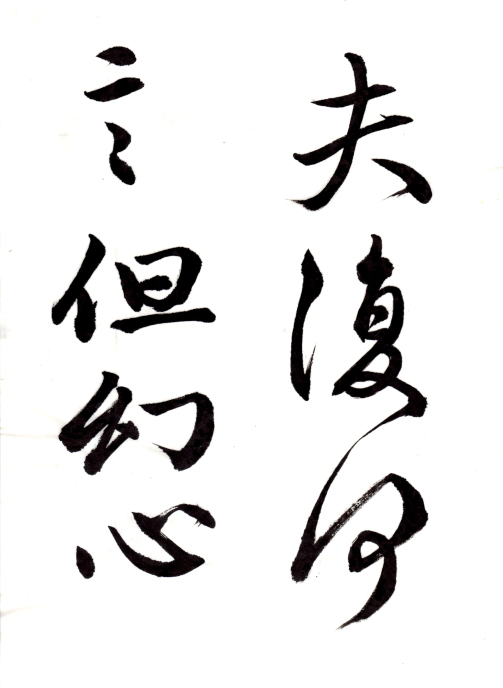 夫復何
言但幻心